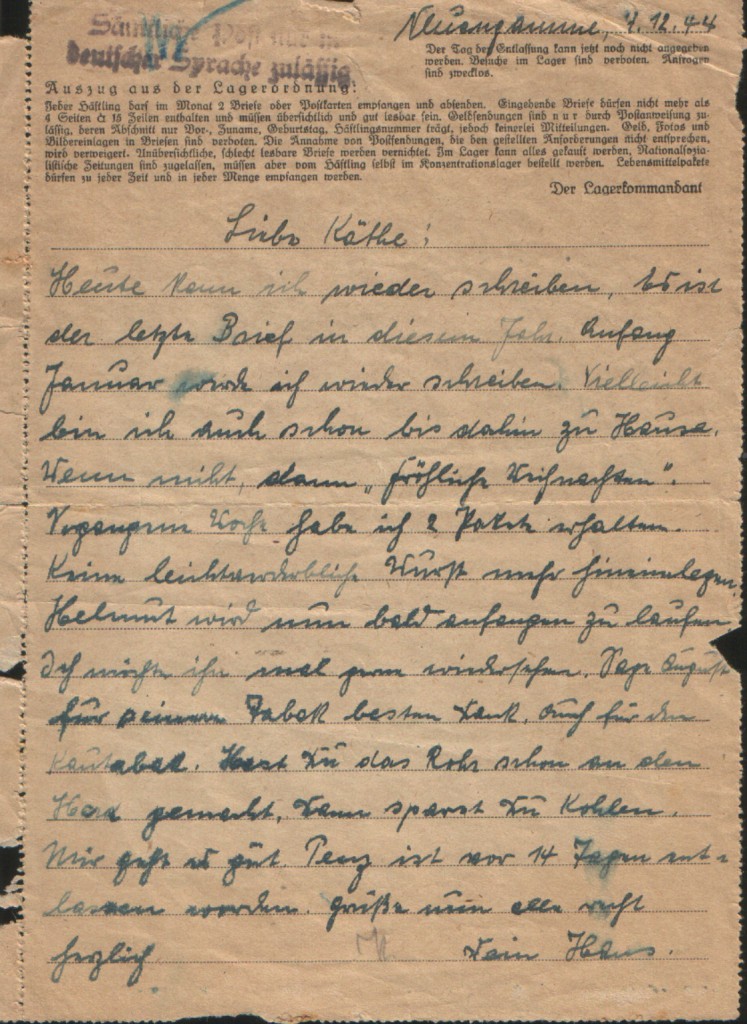 Sämtliche Post nur in
deutscher Sprache zulässig
Neuengamme, 4.12.44
Der Tag der Entlassung kann jetzt noch nicht angegeben
werden. Besuche im Lager sind verboten. Anfragen
sind zwecklos.
Auszug aus der Lagerordnung:
Jeder Häftling darf im Monat 2 Briefe oder Postkarten empfangen und absenden. Eingehende Briefe dürfen nicht mehr als
4 Seiten à 15 Zeilen enthalten und müssen übersichtlich und gut lesbar sein. Geldsendungen sind nur durch Postanweisung zu-
lässig, deren Abschnitt nur Vor-, Zuname, Geburtstag, Häftlingsnummer trägt, jedoch keinerlei Mitteilungen. Geld, Fotos und
Bildereinlagen in Briefen sind verboten. Die Annahme von Postsendungen, die den gestellten Anforderungen nicht entsprechen,
wird verweigert. Unübersichtliche, schlecht lesbare Briefe werden vernichtet. Im Lager kann alles gekauft werden. Nationalsozia-
listische Zeitungen sind zugelassen, müssen aber vom Häftling selbst im Konzentrationslager bestellt werden. Lebensmittelpakete
dürfen zu jeder Zeit und in jeder Menge empfangen werden.
Der Lagerkommandant
Liebe Käthe!
Heute kann ich wieder schreiben. Es ist
der letzte Brief in diesem Jahr. Anfang
Januar werde ich wieder schreiben. Vielleicht
bin ich auch schon bis dahin zu Hause.
Wenn nicht, dann „Fröhliche Weihnachten".
Vergangene Woche habe ich 2 Pakete erhalten.
Keine leichtverderbliche Wurst mehr hineinlegen.
Helmut wird nun bald anfangen zu laufen
Ich möchte ihn mal gerne wiedersehen. Sage August
für seinen Tabak besten Dank. Auch für den
Kautabak. Hast Du das Rohr schon an den
Herd gemacht, dann sparst Du Kohlen.
Mir geht es gut. Penz ist vor 14 Tagen ent-
lassen worden. Grüße nun alle recht
herzlich Dein Hans.